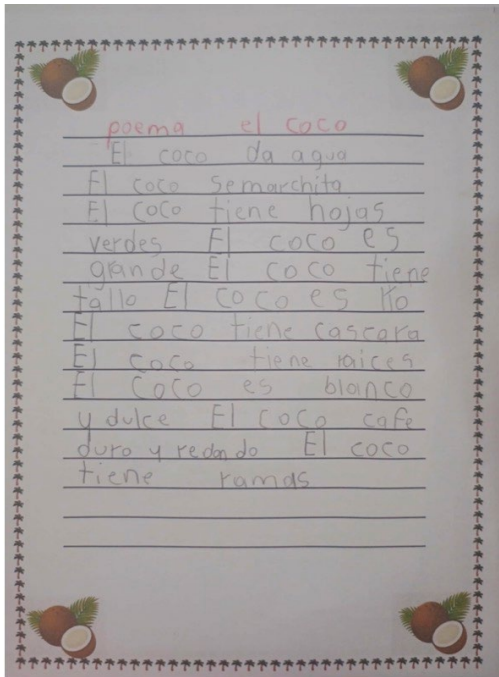 poema el coco
El coco da agua
El coco semarchita
El coco tiene hojas
verdes El coco es
grande El coco tiene
tallo El coco es
El coco tiene cascara
El coco tiene raices
El coco es blanco
y dulce El coco cafe
duro y redondo El coco
tiene ramas